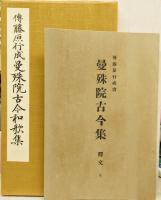 傳藤原行成曼殊院古今和歌集
傳藤原行成書
曼殊院古今集
釋文